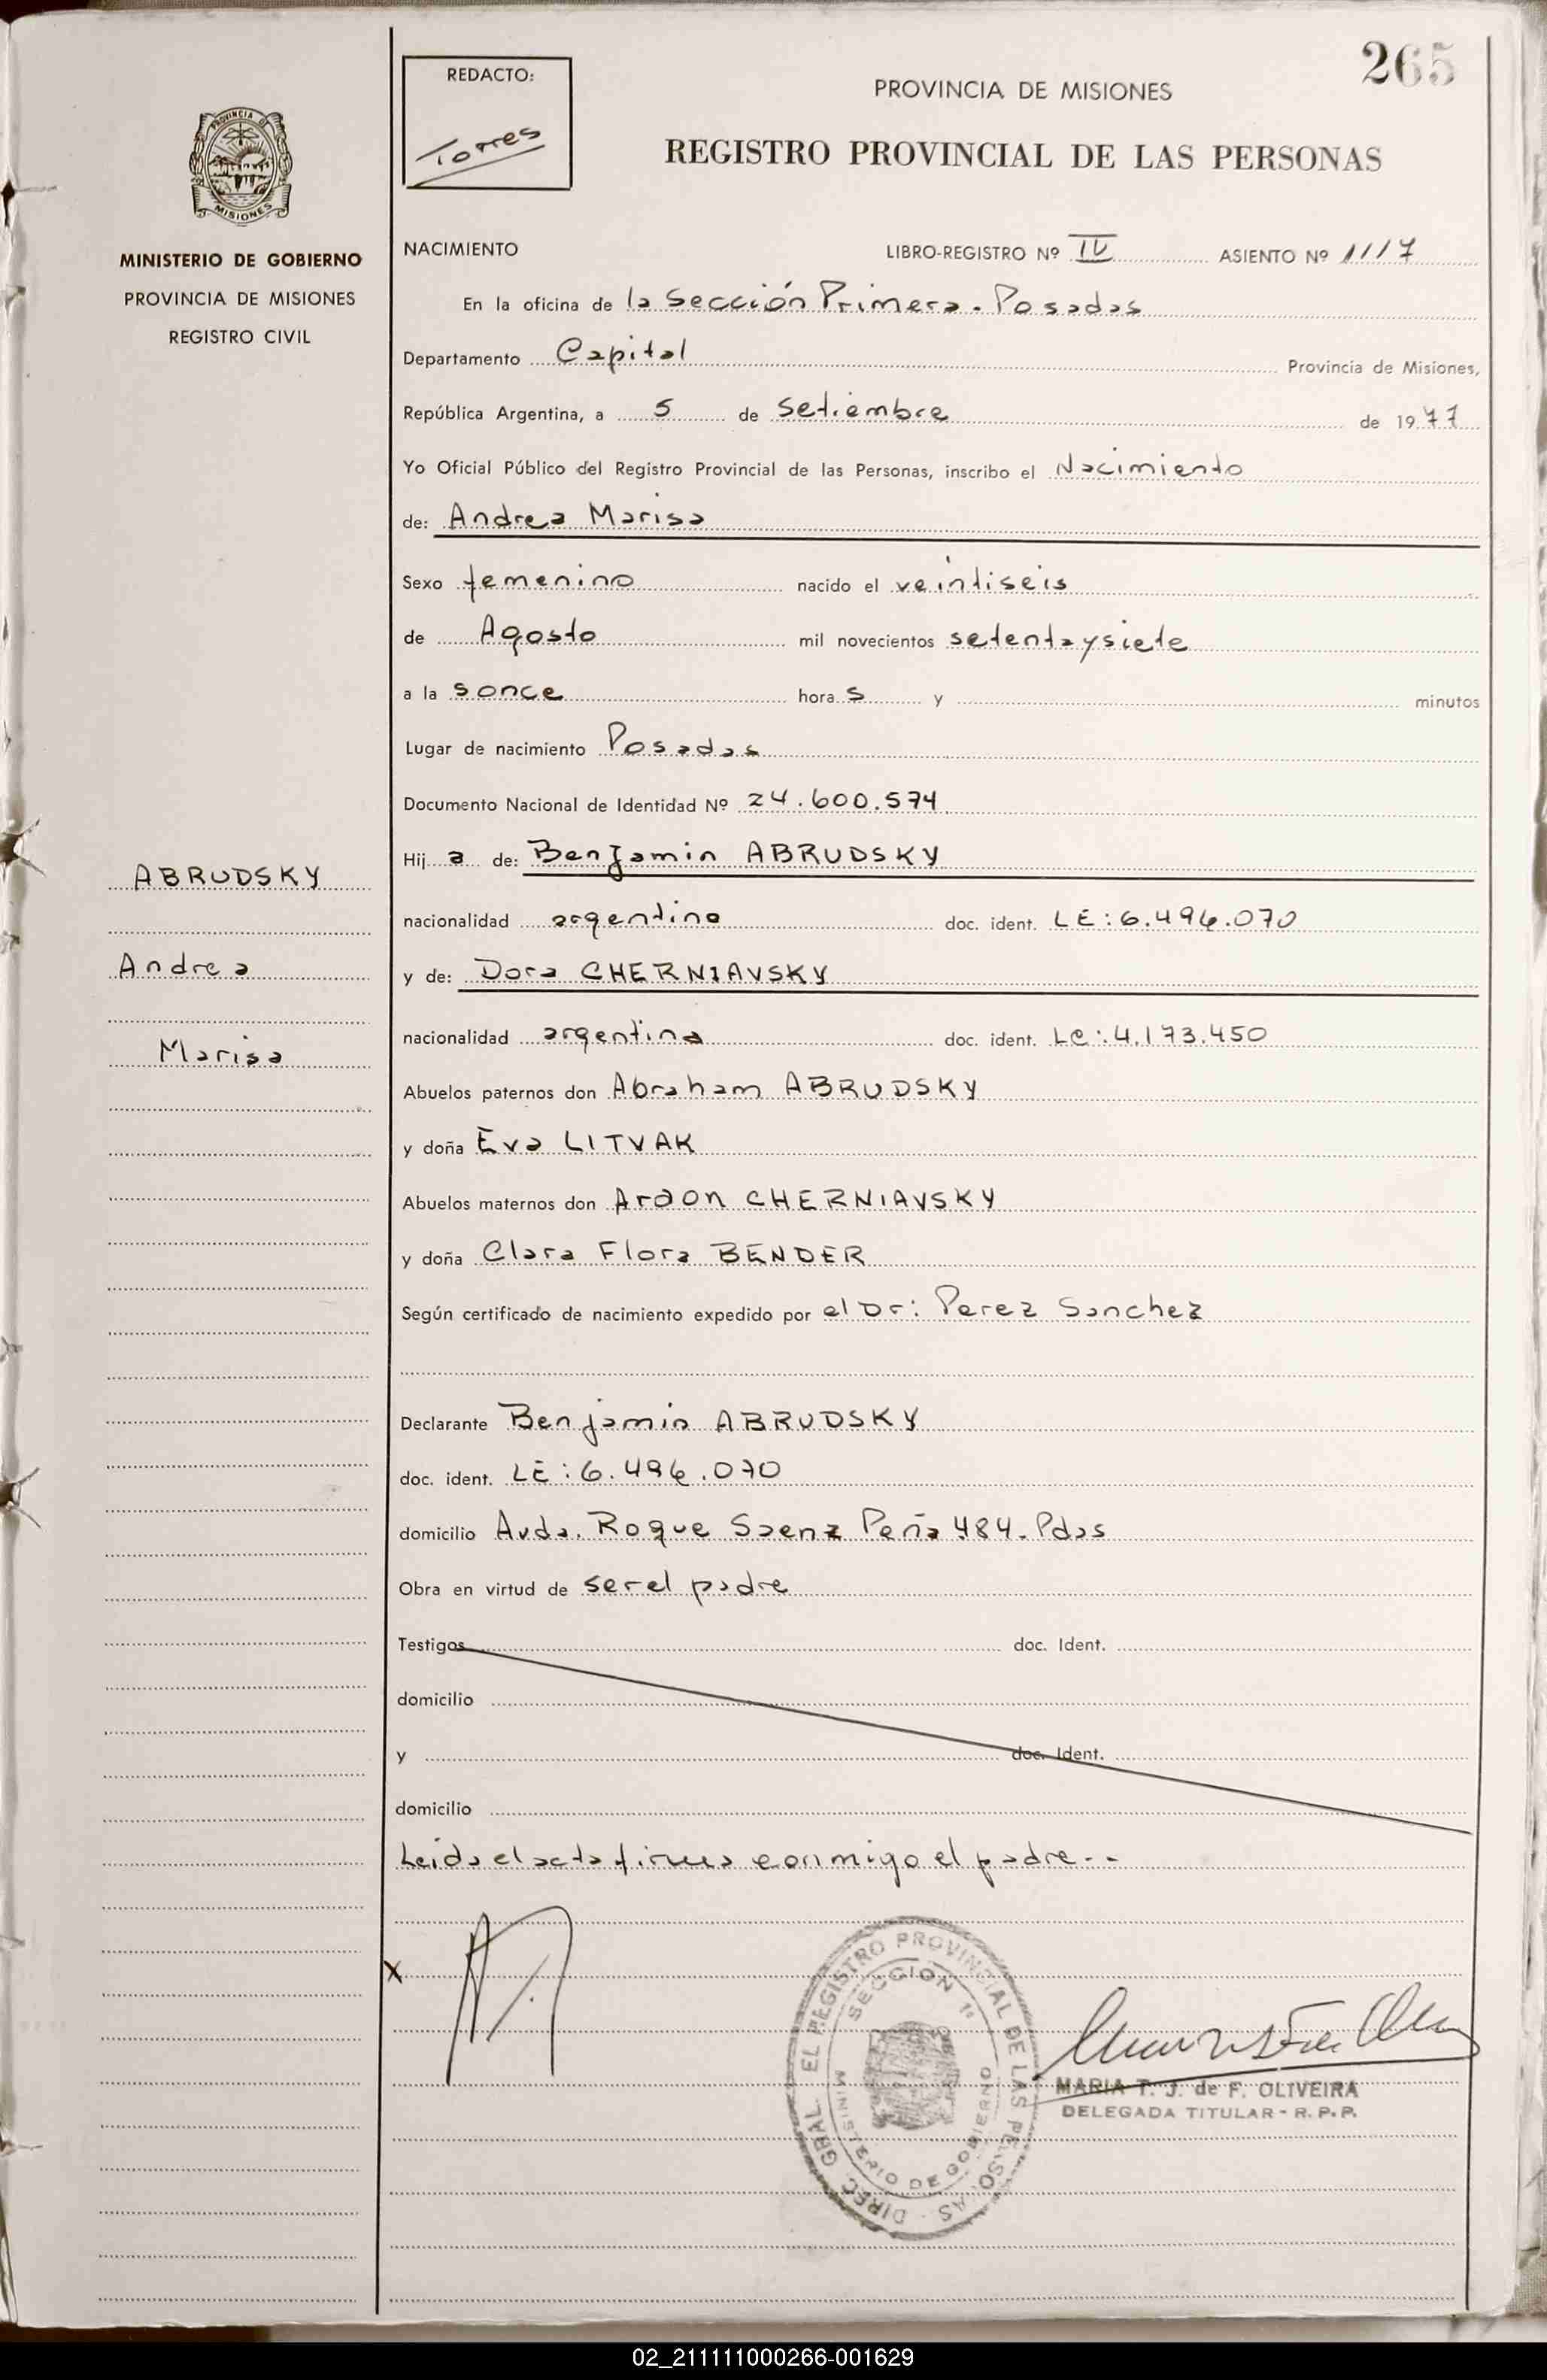 265
REDACTO:
Torres
PROVINCIA DE MISIONES
REGISTRO PROVINCIAL DE LAS PERSONAS
PROVINCIA D
MISIONES
MINISTERIO DE GOBIERNO
PROVINCIA DE MISIONES
REGISTRO CIVIL
NACIMIENTO LIBRO-REGISTRO Nº IV ASIENTO Nº 1117
En la oficina de la Sección Primera - Posadas
Departamento Capital Provincia de Misiones,
República Argentina, a 5 de Setiembre de 1977
Yo Oficial Público del Registro Provincial de las Personas, inscribo el Nacimiento
de: Andrea Marisa
Sexo femenino nacido el veintiseis
de Agosto mil novecientos setentaysiete
a la s once hora s y minutos
Lugar de nacimiento Posadas
Documento Nacional de Identidad Nº 24.600.574
Hij a de: Benjamin ABRUDSKY
ABRUDSKY
nacionalidad argentino doc. ident. LE: 6.496.070
Andrea
y de: Dora CHERNIAVSKY
nacionalidad argentina doc. ident. LC: 4.173.450
Marisa
Abuelos paternos don Abraham ABRUDSKY
y doña Eva LITVAK
Abuelos maternos don Araon CHERNIAVSKY
y doña Clara Flora BENDER
Según certificado de nacimiento expedido por el Dr: Perez Sanchez
Declarante Benjamin ABRUDSKY
doc. ident. LE: 6.496.070
domicilio Avda. Roque Saenz Peña 484- Pdas
Obra en virtud de ser el padre
Testigos doc. Ident.
domicilio
y doc. Ident.
domicilio
Leida el acta firma conmigo el padre--
X
DIREC. GRAL. EL REGISTRO PROVINCIAL DE LAS PERSONAS
SECCION 1ª
MINISTERIO DE GOBIERNO
MARIA T. J. de F. OLIVEIRA
DELEGADA TITULAR - R. P. P.
02_211111000266-001629